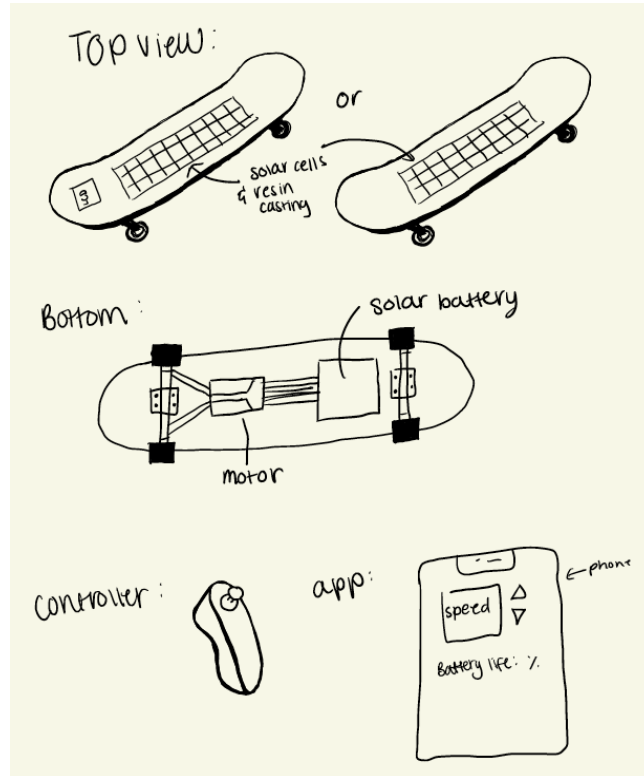 TOP view:
or
solar cells
& resin
casting
Bottom:
solar battery
motor
controller:
app:
phone
speed
Battery life: %